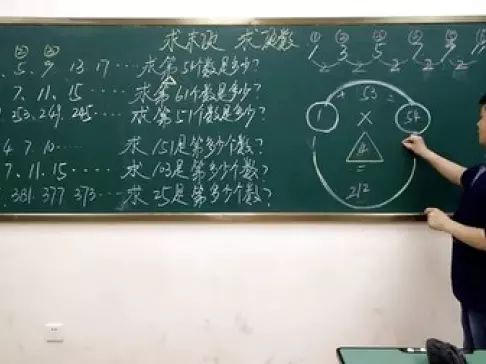 求末项 求项数
① ② ③ ④ ⑤ ⑥
1 3 5 7 9 11
2 2 2 2 2
② ③
5. 9 13. 17 …… 求第54个数是多少?
7. 11. 15. …… 求第61个数是多少?
253. 249. 245 …… 求第51个数是多少?
4 7. 10 …… 求 151是第多少个数?
7. 11. 15 …… 求 103是第多少个数?
381. 377 373 …… 求 25是第多少个数?
53
1 × 54
4
=
212